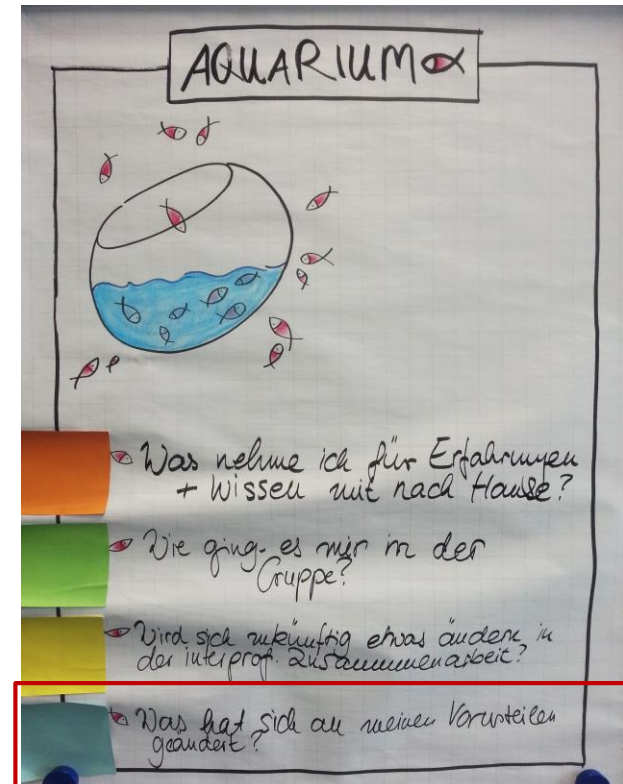 AQUARIUM
Was nehme ich für Erfahrungen
+ Wissen mit nach Hause?
Wie ging es mir in der
Gruppe?
Wird sich zukünftig etwas ändern in
der interprof. Zusammenarbeit?
Was hat sich an meinen Vorurteilen
geändert?